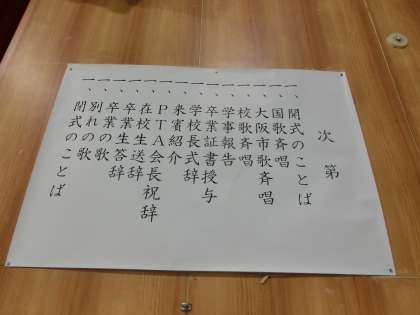 次第
一、開式のことば
一、国歌斉唱
一、大阪市歌斉唱
一、校歌斉唱
一、学事報告
一、卒業証書授与
一、学校長式辞
一、来賓紹介
一、PTA会長祝辞
一、在校生送辞
一、卒業生答辞
一、卒業の歌
一、別れの歌
一、閉式のことば